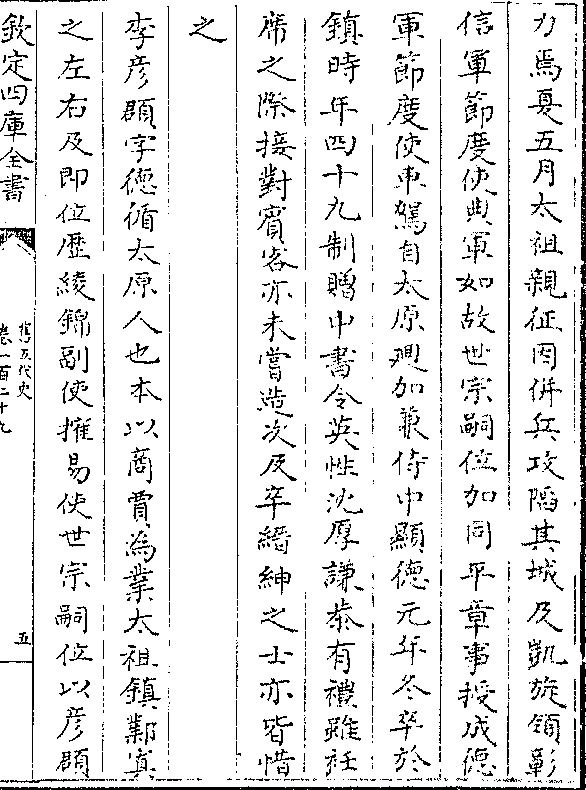 力焉夏五月太祖親征因併兵攻陷其城及凱旋領彰
信軍節度使典軍如故世宗嗣位加同平章事授成德
軍節度使車駕自太原迴加兼侍中顯德元年冬卒於
鎮時年四十九制贈中書令英性沈厚謙恭有禮雖衽
席之際接對賓客亦未嘗造次及卒縉紳之士亦皆惜
之
李彦頵字德循太原人也本以商賈為業太祖鎮鄴寘
之左右及即位歴綾錦副使搉易使世宗嗣位以彦頵
欽定四庫全書
舊五代史
卷一百二十九
五